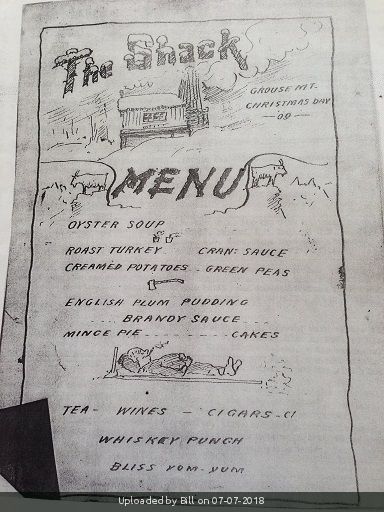 The Shack
GROUSE MT.
CHRISTMAS DAY
- 09 -
MENU
OYSTER SOUP
ROAST TURKEY CRAN: SAUCE
CREAMED POTATOES - GREEN PEAS
ENGLISH PLUM PUDDING
BRANDY SAUCE
MINCE PIE CAKES
TEA - WINES - CIGARS
WHISKEY PUNCH
BLISS YUM-YUM
Uploaded by Bill on 07-07-2018